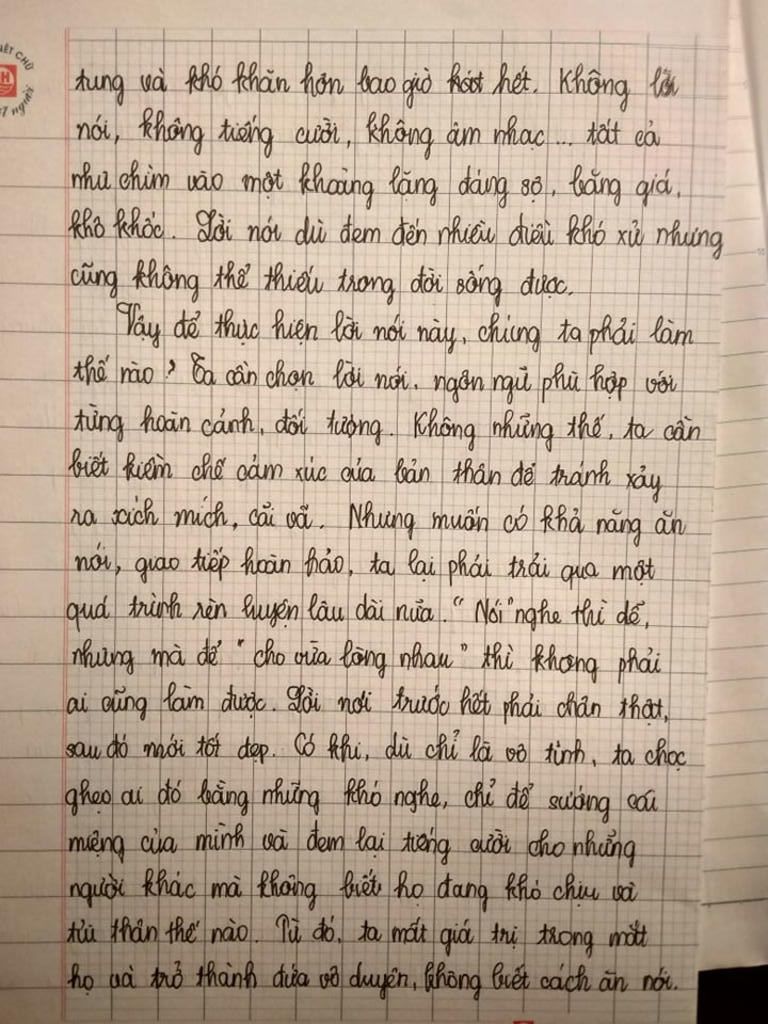 IẾT CHỮ
H
Ế người
tung và khó khăn hơn bao giờ hết. Không lời
nói, không tiếng cười, không âm nhạc... tất cả
như chìm vào một khoảng lặng đáng sợ, băng giá,
khô khốc. Lời nói dù đem đến nhiều điều khó xử nhưng
cũng không thể thiếu trong đời sống được.
Vậy để thực hiện lời nói này, chúng ta phải làm
thế nào? Ta cần chọn lời nói, ngôn ngữ phù hợp với
từng hoàn cảnh, đối tượng. Không những thế, ta cần
biết kiềm chế cảm xúc của bản thân để tránh xảy
ra xích mích, cãi vã. Nhưng muốn có khả năng ăn
nói, giao tiếp hoàn hảo, ta lại phải trải qua một
quá trình rèn luyện lâu dài nữa. "Nói" nghe thì dễ,
nhưng mà để "cho vừa lòng nhau" thì không phải
ai cũng làm được. Lời nói trước hết phải chân thật,
sau đó mới tốt đẹp. Có khi, dù chỉ là vô tình, ta chọc
ghẹo ai đó bằng những khó nghe, chỉ để sướng cái
miệng của mình và đem lại tiếng cười cho những
người khác mà không biết họ đang khó chịu và
tủi thân thế nào. Từ đó, ta mất giá trị trong mắt
họ và trở thành đứa vô duyên, không biết cách ăn nói.